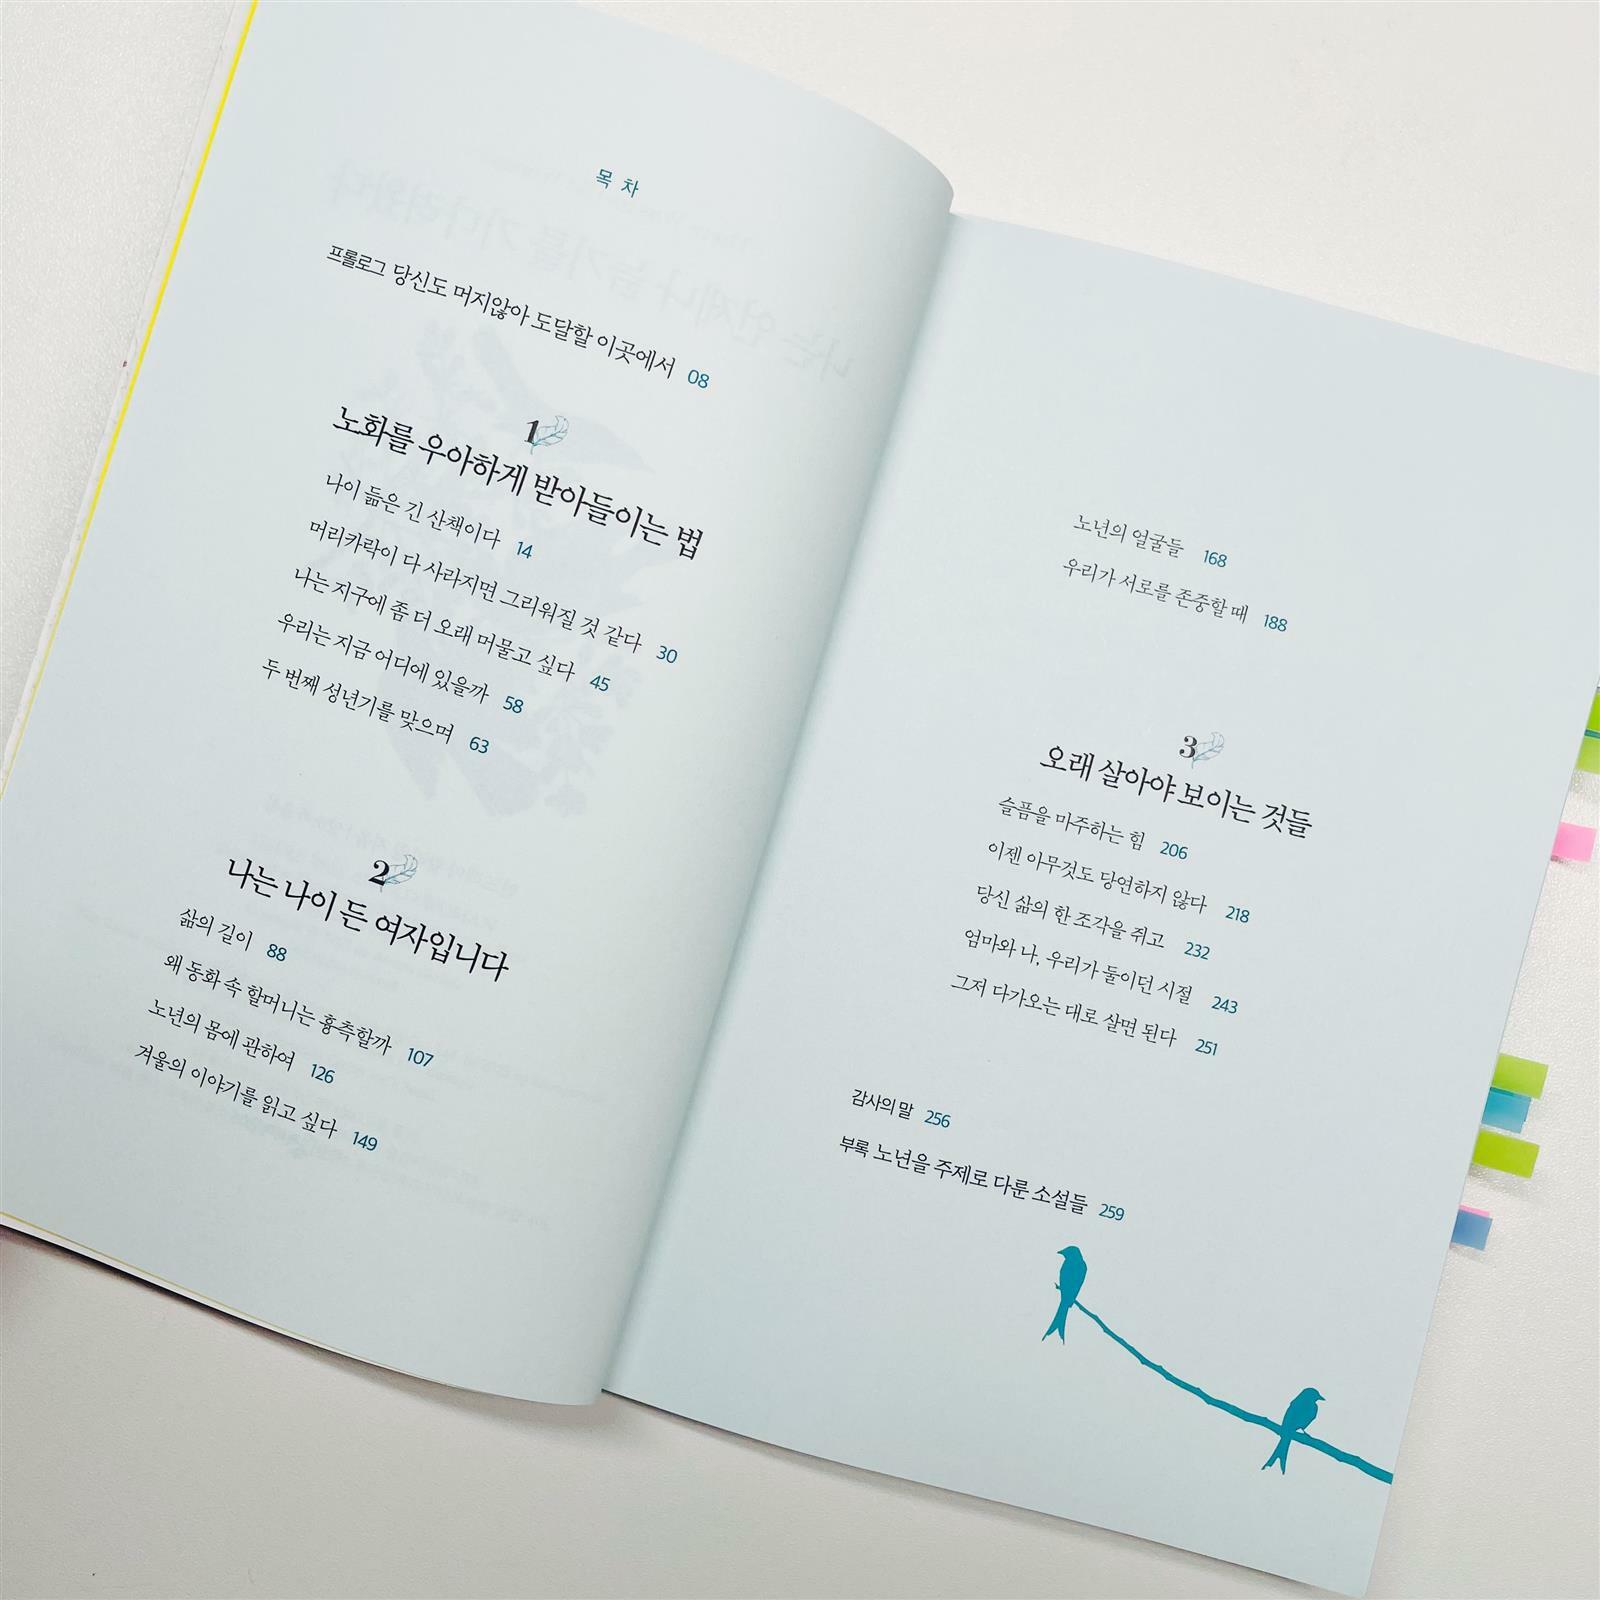 목 차
프롤로그 당신도 머지않아 도달할 이곳에서 08
1
노화를 우아하게 받아들이는 법
나이 듦은 긴 산책이다 14
머리카락이 다 사라지면 그리워질 것 같다 30
나는 지구에 좀 더 오래 머물고 싶다 45
우리는 지금 어디에 있을까 58
두 번째 성년기를 맞으며 63
2
나는 나이 든 여자입니다
삶의 길이 88
왜 동화 속 할머니는 흉측할까 107
노년의 몸에 관하여 126
겨울의 이야기를 읽고 싶다 149
노년의 얼굴들 168
우리가 서로를 존중할 때 188
3
오래 살아야 보이는 것들
슬픔을 마주하는 힘 206
이젠 아무것도 당연하지 않다 218
당신 삶의 한 조각을 쥐고 232
엄마와 나, 우리가 둘이던 시절 243
그저 다가오는 대로 살면 된다 251
감사의 말 256
부록 노년을 주제로 다룬 소설들 259